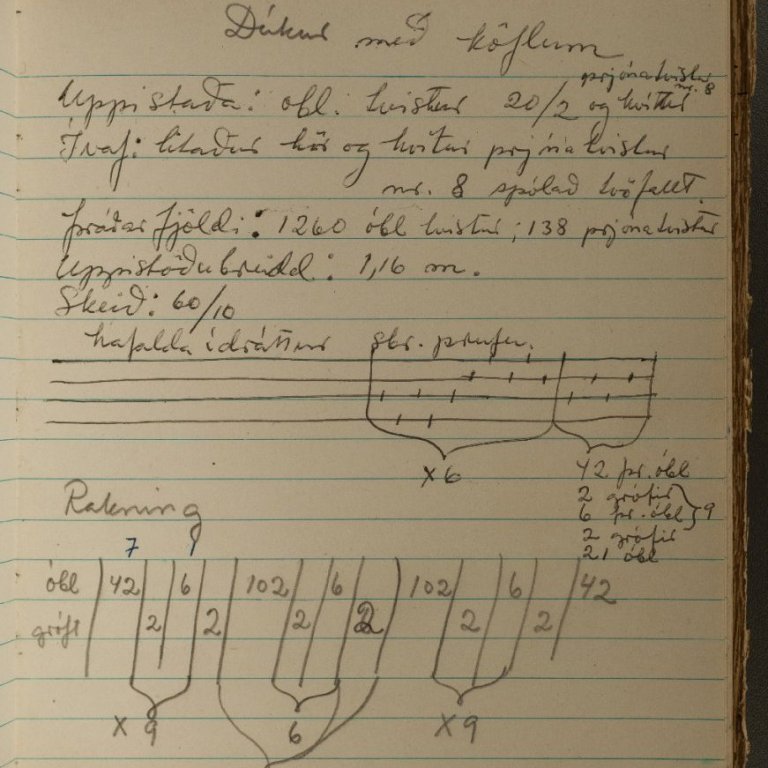 Dúkur með köflum
prjónatvistur
nr. 8
Uppistaða: óbl. tvistur 20/2 og hvítur
Ívaf: litaður hör og hvítur prjónatvistur
nr. 8 spólað tvöfallt.
Þráðarfjöldi: 1260 óbl tvistur; 138 prjónatvistur
Uppistöðubreidd: 1,16 m.
Skeið: 60/10
hafalda ídráttur sbr. prufu.
x6
42 þr. óbl
2 grófir
6 þr. óbl } 9
2 grófir
21 óbl
Rakning
7 1
óbl 42 6 102 6 102 6 42
gróft 2 2 2 2 2 2
x 9 6 x 9